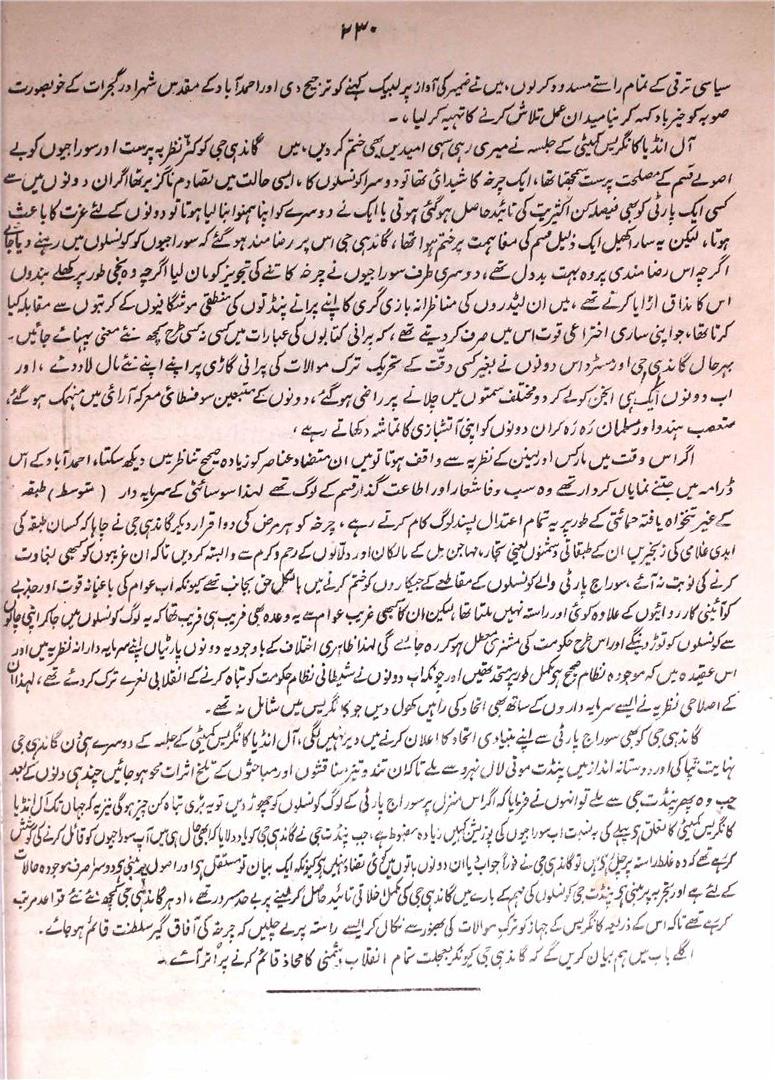 ۲۳۰
سیاسی ترقی کے تمام راستے مسدود کرلوں، میں نے ضمیر کی آواز پر لبیک کہنے کو ترجیح دی اور احمد آباد کے مقدس شہر اور گجرات کے خوبصورت
صوبہ کو خیرباد کہہ کر نیا میدان عمل تلاش کرنے کا تہیہ کر لیا،۔
آل انڈیا کانگریس کمیٹی کے جلسہ نے میری رہی سہی امیدیں بھی ختم کر دیں، میں گاندھی جی کو کٹر نظریہ پرست اور سوراجیوں کو بے
اصولے قسم کے مصلحت پرست سمجھتا تھا، ایک چرخہ کا شیدائی تھا تو دوسرا کونسلوں کا، ایسی حالت میں تصادم ناگزیر تھا اگر ان دونوں میں سے
کسی ایک پارٹی کو بھی فیصلہ کن اکثریت کی تائید حاصل ہو گئی ہوتی یا ایک نے دوسرے کو اپنا ہمنوا بنا لیا ہوتا تو دونوں کے لئے عزت کا باعث
ہوتا، لیکن یہ سارا کھیل ایک ذلیل قسم کی مفاہمت پر ختم ہوا تھا، گاندھی جی اس پر رضا مند ہو گئے کہ سوراجیوں کو کونسلوں میں رہنے دیا جائے
اگرچہ اس رضا مندی پر وہ بہت بددل تھے، دوسری طرف سوراجیوں نے چرخہ کاتنے کی تجویز کو مان لیا اگرچہ وہ نجی طور پر کھلے بندوں
اس کا مذاق اڑایا کرتے تھے، میں ان لیڈروں کی مناظرانہ بازی گری کا اپنے پرانے پنڈتوں کی منطقی موشگافیوں کے کرتبوں سے مقابلہ کیا
کرتا تھا، جو اپنی ساری اختراعی قوت اس میں صرف کر دیتے تھے، کہ پرانی کتابوں کی عبارات میں کسی نہ کسی طرح کچھ نئے معنی پہنائے جائیں۔
بہرحال گاندھی جی اور مسٹر داس دونوں نے بغیر کسی دقت کے تحریک ترک موالات کی پرانی گاڑی پر اپنے اپنے نئے مال لاد دئے، اور
اب دونوں ایک ہی انجن کو لے کر دو مختلف سمتوں میں چلانے پر راضی ہو گئے، دونوں کے متبعین سوفسطائی معرکہ آرائی میں منہمک ہو گئے،
متعصب ہندو اور مسلمان رہ رہ کر ان دونوں کو اپنی آتشبازی کا تماشہ دکھاتے رہے،
اگر اس وقت میں مارکس اور لینن کے نظریہ سے واقف ہوتا تو میں ان متضاد عناصر کو زیادہ صحیح تناظر میں دیکھ سکتا، احمد آباد کے اس
ڈرامہ میں جتنے نمایاں کردار تھے وہ سب وفا شعار اور اطاعت گذار قسم کے لوگ تھے لہذا سوسائٹی کے سرمایہ دار (متوسط) طبقہ
کے غیر تنخواہ یافتہ حمائتی کے طور پر یہ تمام اعتدال پسند لوگ کام کرتے رہے، چرخہ کو ہر مرض کی دوا قرار دیکر گاندھی جی نے چاہا کہ کسان طبقہ کی
ابدی غلامی کی زنجیریں ان کے طبقاتی دشمنوں یعنی تجار، مہاجن مل کے مالکان اور دلالوں کے رحم و کرم سے وابستہ کر دیں تاکہ ان غریبوں کو کبھی بغاوت
کرنے کی نوبت نہ آئے، سوراج پارٹی والے کونسلوں کے مقاطعے کے جیکاروں کو ختم کرنے میں بالکل حق بجانب تھے کیونکہ اب عوام کی باغیانہ قوت اور جذبے
کو آئینی کارروائیوں کے علاوہ کوئی اور راستہ نہیں ملتا تھا، لیکن ان کا کبھی غریب عوام سے یہ وعدہ بھی فریب ہی فریب تھا کہ یہ لوگ کونسلوں میں جا کر اپنی چالوں
سے کونسلوں کو توڑ دینگے اور اس طرح حکومت کی مشنری معطل ہو کر رہ جائے گی لہذا ظاہری اختلاف کے باوجود یہ دونوں پارٹیاں اپنے سرمایہ دارانہ نظریہ میں اور
اس عقیدہ میں کہ موجودہ نظام صحیح ہو مکمل طور پر متحد تھیں اور چونکہ اب دونوں نے شیطانی نظام حکومت کو تباہ کرنے کے انقلابی نعرے ترک کر دئے تھے، لہذا ان
کے اصلاحی نظریہ نے ایسے سرمایہ داروں کے ساتھ بھی اتحاد کی راہیں کھول دیں جو کانگریس میں شامل نہ تھے۔
گاندھی جی کو بھی سوراج پارٹی سے اپنے بنیادی اتحاد کا اعلان کرنے میں دیر نہیں لگی، آل انڈیا کانگریس کمیٹی کے جلسہ کے دوسرے ہی دن گاندھی جی
نہایت تپاکی اور دوستانہ انداز میں پنڈت موتی لال نہرو سے ملے تاکہ ان تند و تیز مناقشوں اور مباحثوں کے تلخ اثرات محو ہو جائیں چند ہی دنوں کے بعد
جب وہ پھر پنڈت جی سے ملے تو انہوں نے فرمایا کہ اگر اس منزل پر سوراج پارٹی کے لوگ کونسلوں کو چھوڑ دیں تو یہ بڑی تباہ کن چیز ہو گی نیز یہ کہ جہاں تک آل انڈیا
کانگریس کمیٹی کا تعلق ہے پہلے کی بہ نسبت اب سوراجیوں کی پوزیشن کہیں زیادہ مضبوط ہے، جب پنڈت جی نے گاندھی جی کو یاد دلایا کہ ابھی حال ہی میں آپ سوراجیوں کو قائل کرنے کی کوشش
کر رہے تھے کہ وہ غلط راستہ پر چل رہے ہیں تو گاندھی جی نے فوراً جواب دیا ان دونوں باتوں میں کوئی تضاد نہیں ہے کیونکہ ایک بیان تو مستقل ہے اور اصول پر مبنی ہے دوسرا صرف موجودہ حالات
کے لئے ہے اور تجربہ پر مبنی ہے پنڈت جی کونسلوں کی مہم کے بارے میں گاندھی جی کی مکمل اخلاقی تائید حاصل کر لینے پر بے حد مسرور تھے، ادھر گاندھی جی کچھ نئے نئے قواعد مرتب
کر رہے تھے تاکہ اس کے ذریعہ کانگریس کے جہاز کو ترک موالات کی بھنور سے نکال کر ایسے راستہ پر لے چلیں کہ چرخہ کی آفاق گیر سلطنت قائم ہو جائے۔
اگلے باب میں ہم بیان کریں گے کہ گاندھی جی کیونکر بعجلت تمام انقلاب دشمنی کا محاذ قائم کرنے پر اتر آئے۔